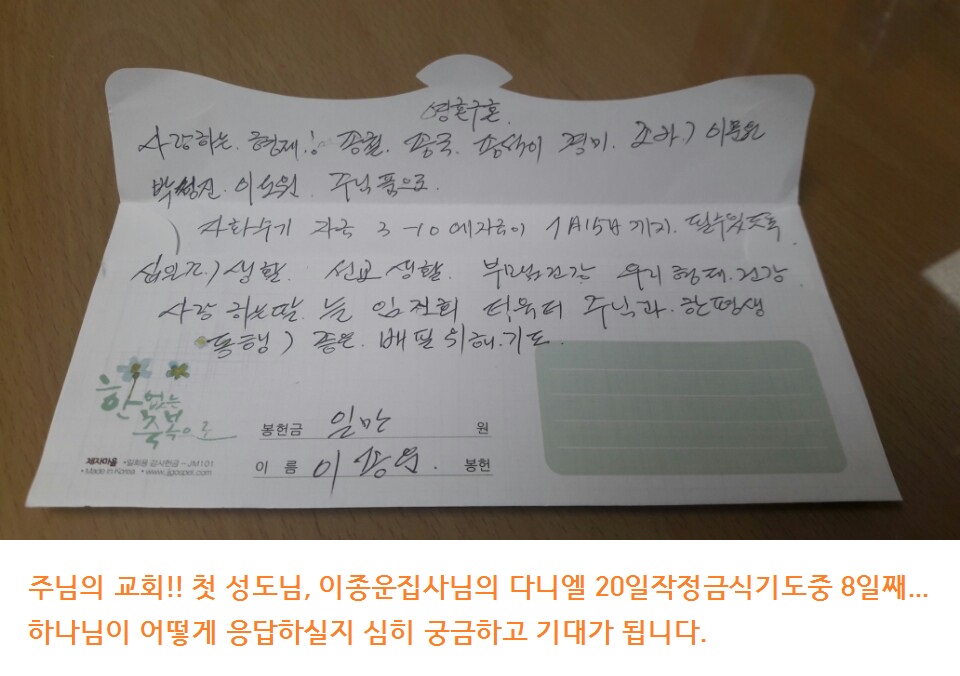 영혼구혼.
사랑하는. 형제! 종철. 종국. 종석이 경미. 조카) 이
박성진. 이소원. 주님 품으로.
자화수기 자국 3-10 에자금이 1月15日 까지. 될수있도록
십일조) 생활. 선교 생활. 부모님건강 우리 형제. 건강
사랑 하는딸. 늘 임 더욱더 주님과. 한평생
동행) 좋은. 배필 위해. 기도.
한없는
축복으로
봉헌금 일만 원
이 름 이종운. 봉헌
제자마을 •일회용 감사헌금-JM101
• Made in Korea • www.jjgospel.com
주님의 교회!! 첫 성도님, 이종운집사님의 다니엘 20일작정금식기도중 8일째...
하나님이 어떻게 응답하실지 심히 궁금하고 기대가 됩니다.